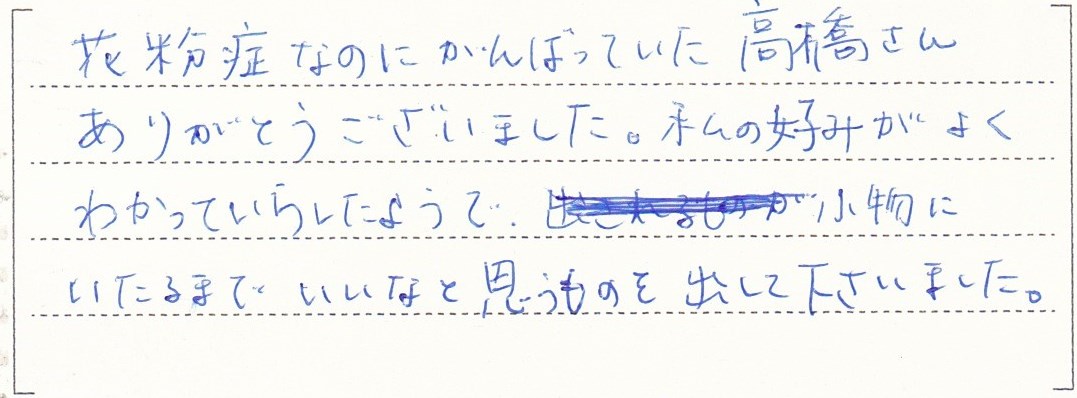 花粉症なのにがんばっていた高橋さん
ありがとうございました。私の好みがよく
わかっていらしたようで、小物に
いたるまでいいなと思うものを出して下さいました。